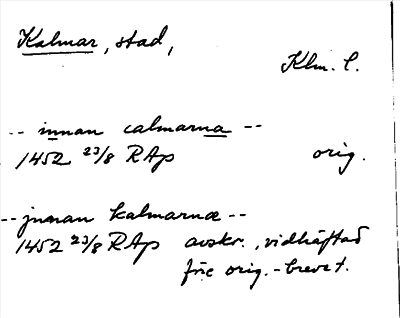 Kalmar, stad,
Klm. l.
-- innan calmarna --
1452 23/8 RAp orig.
-- jnnan kalmarnæ --
1452 23/8 RAp avskr., vidhäftad
före orig.-brevet.